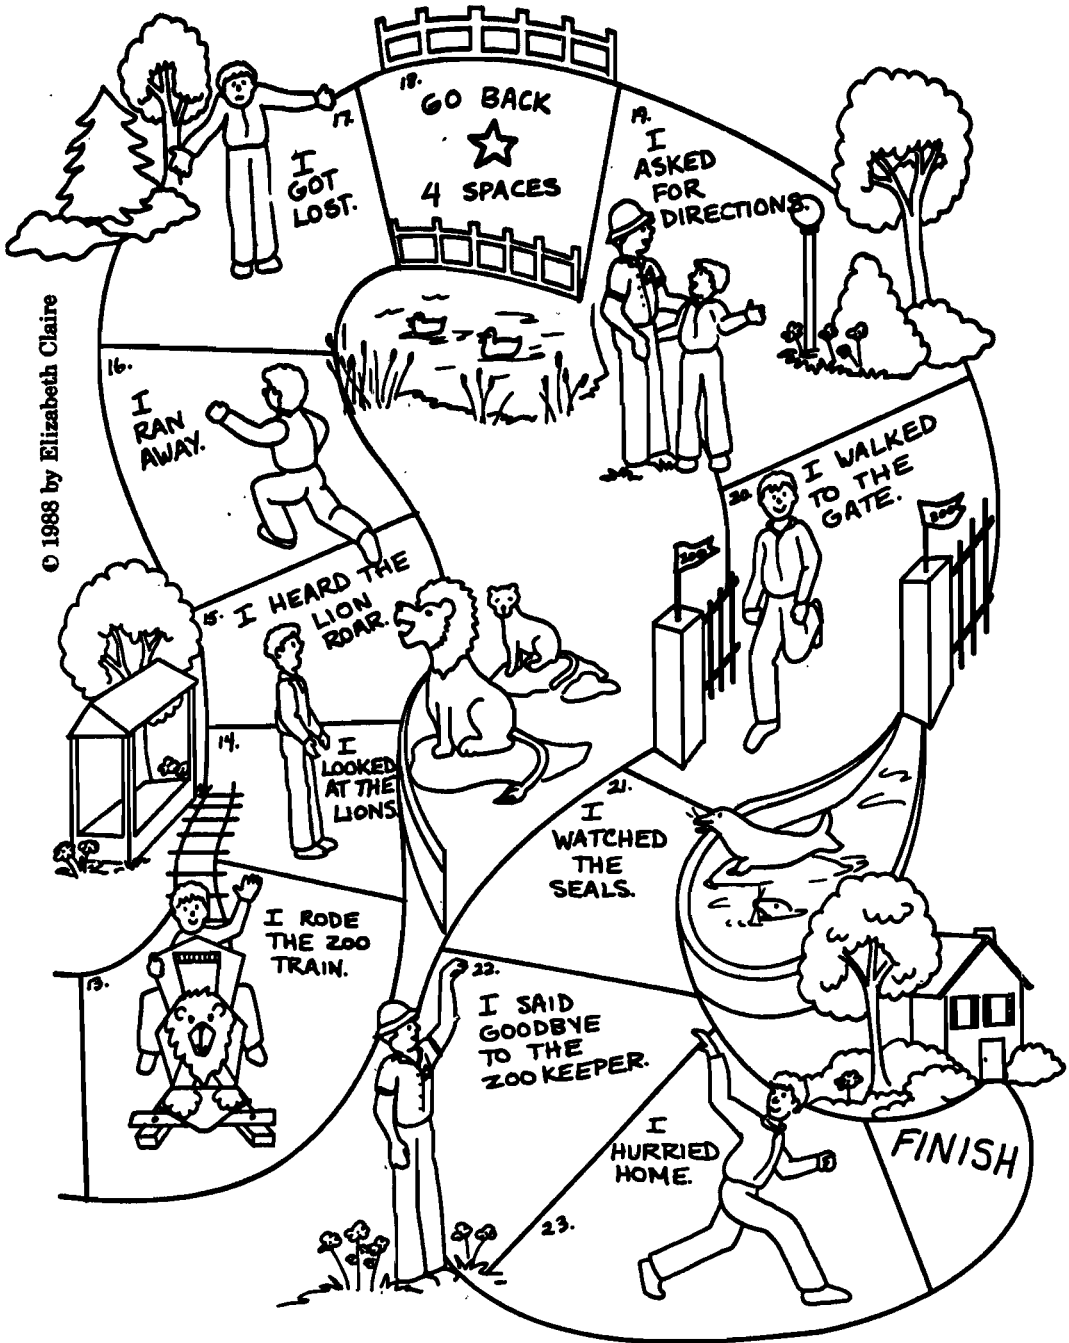 © 1988 by Elizabeth Claire
13.
I RODE
THE ZOO
TRAIN.
14.
I
LOOKED
AT THE
LIONS.
15.
I HEARD THE
LION
ROAR.
16.
I
RAN
AWAY.
17.
I
GOT
LOST.
18.
GO BACK
4 SPACES
19.
I
ASKED
FOR
DIRECTIONS.
20.
I WALKED
TO THE
GATE.
ZOO
ZOO
21.
I
WATCHED
THE
SEALS.
22.
I SAID
GOODBYE
TO THE
ZOO KEEPER.
23.
I
HURRIED
HOME.
FINISH